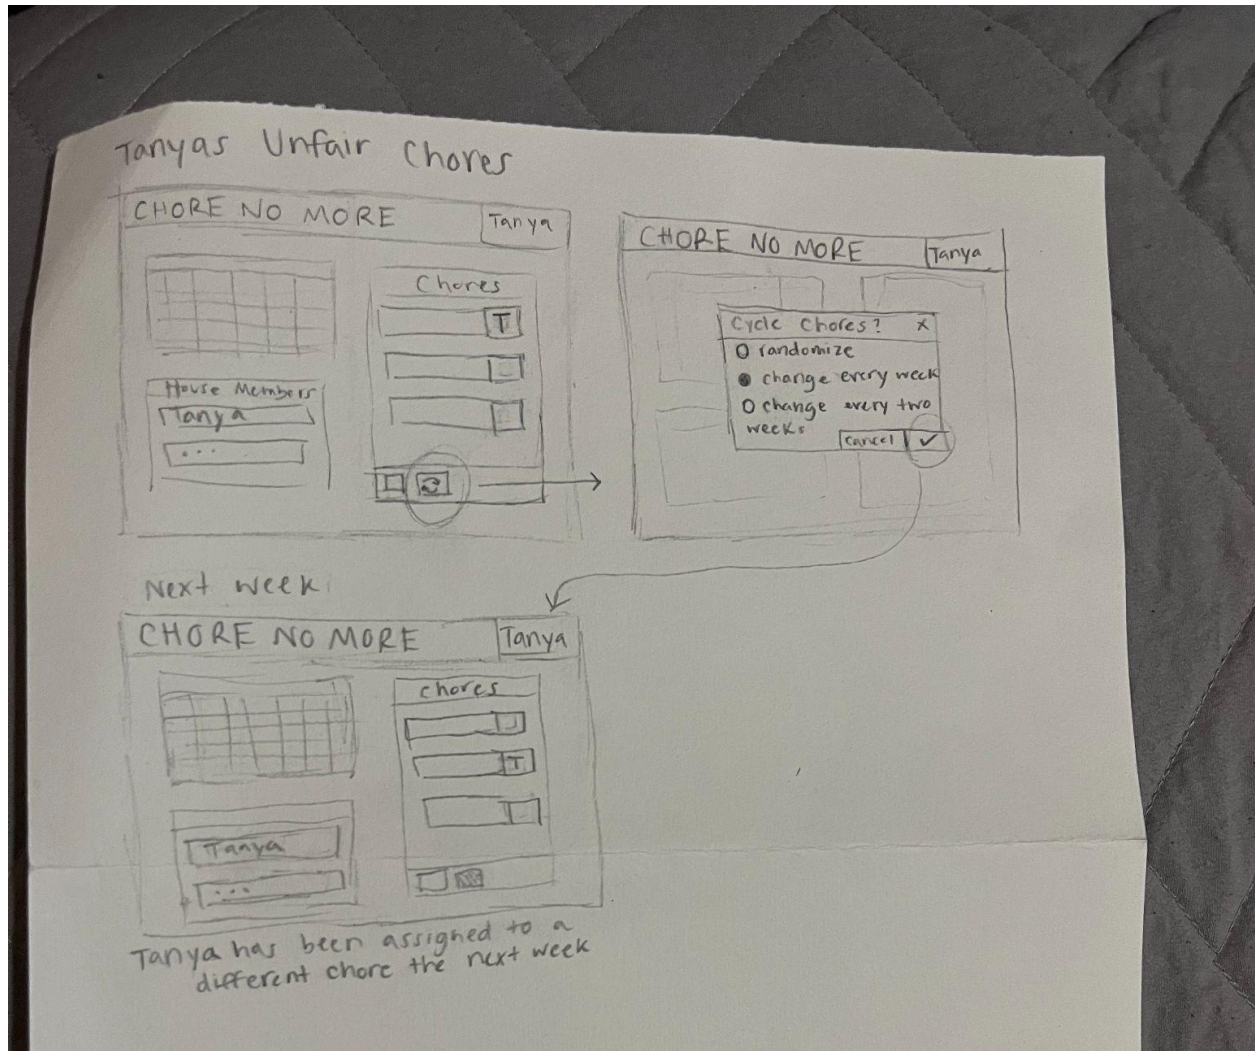 Tanyas Unfair Chores
CHORE NO MORE
Tanya
Chores
T
House Members
Tanya
...
CHORE NO MORE
Tanya
Cycle Chores? X
randomize
change every week
change every two
weeks
cancel ✓
Next week
CHORE NO MORE
Tanya
Chores
T
Tanya
...
Tanya has been assigned to a
different chore the next week